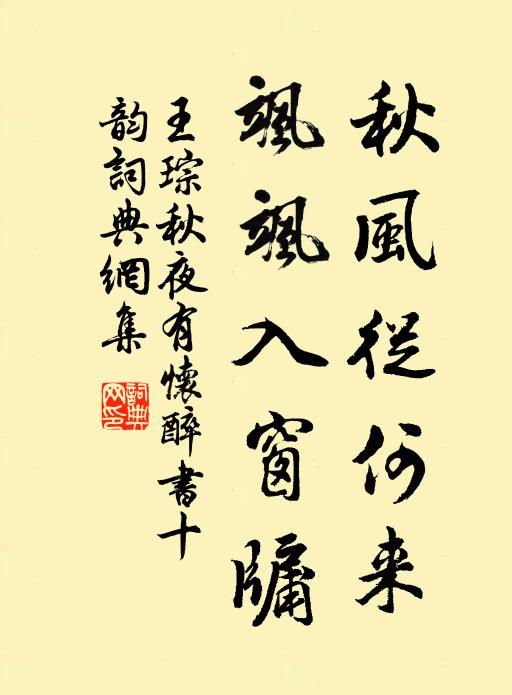 秋風從何来
颯颯入窗牖
王琮秋夜有懷醉書十
韵詞典網集
詞典
网印